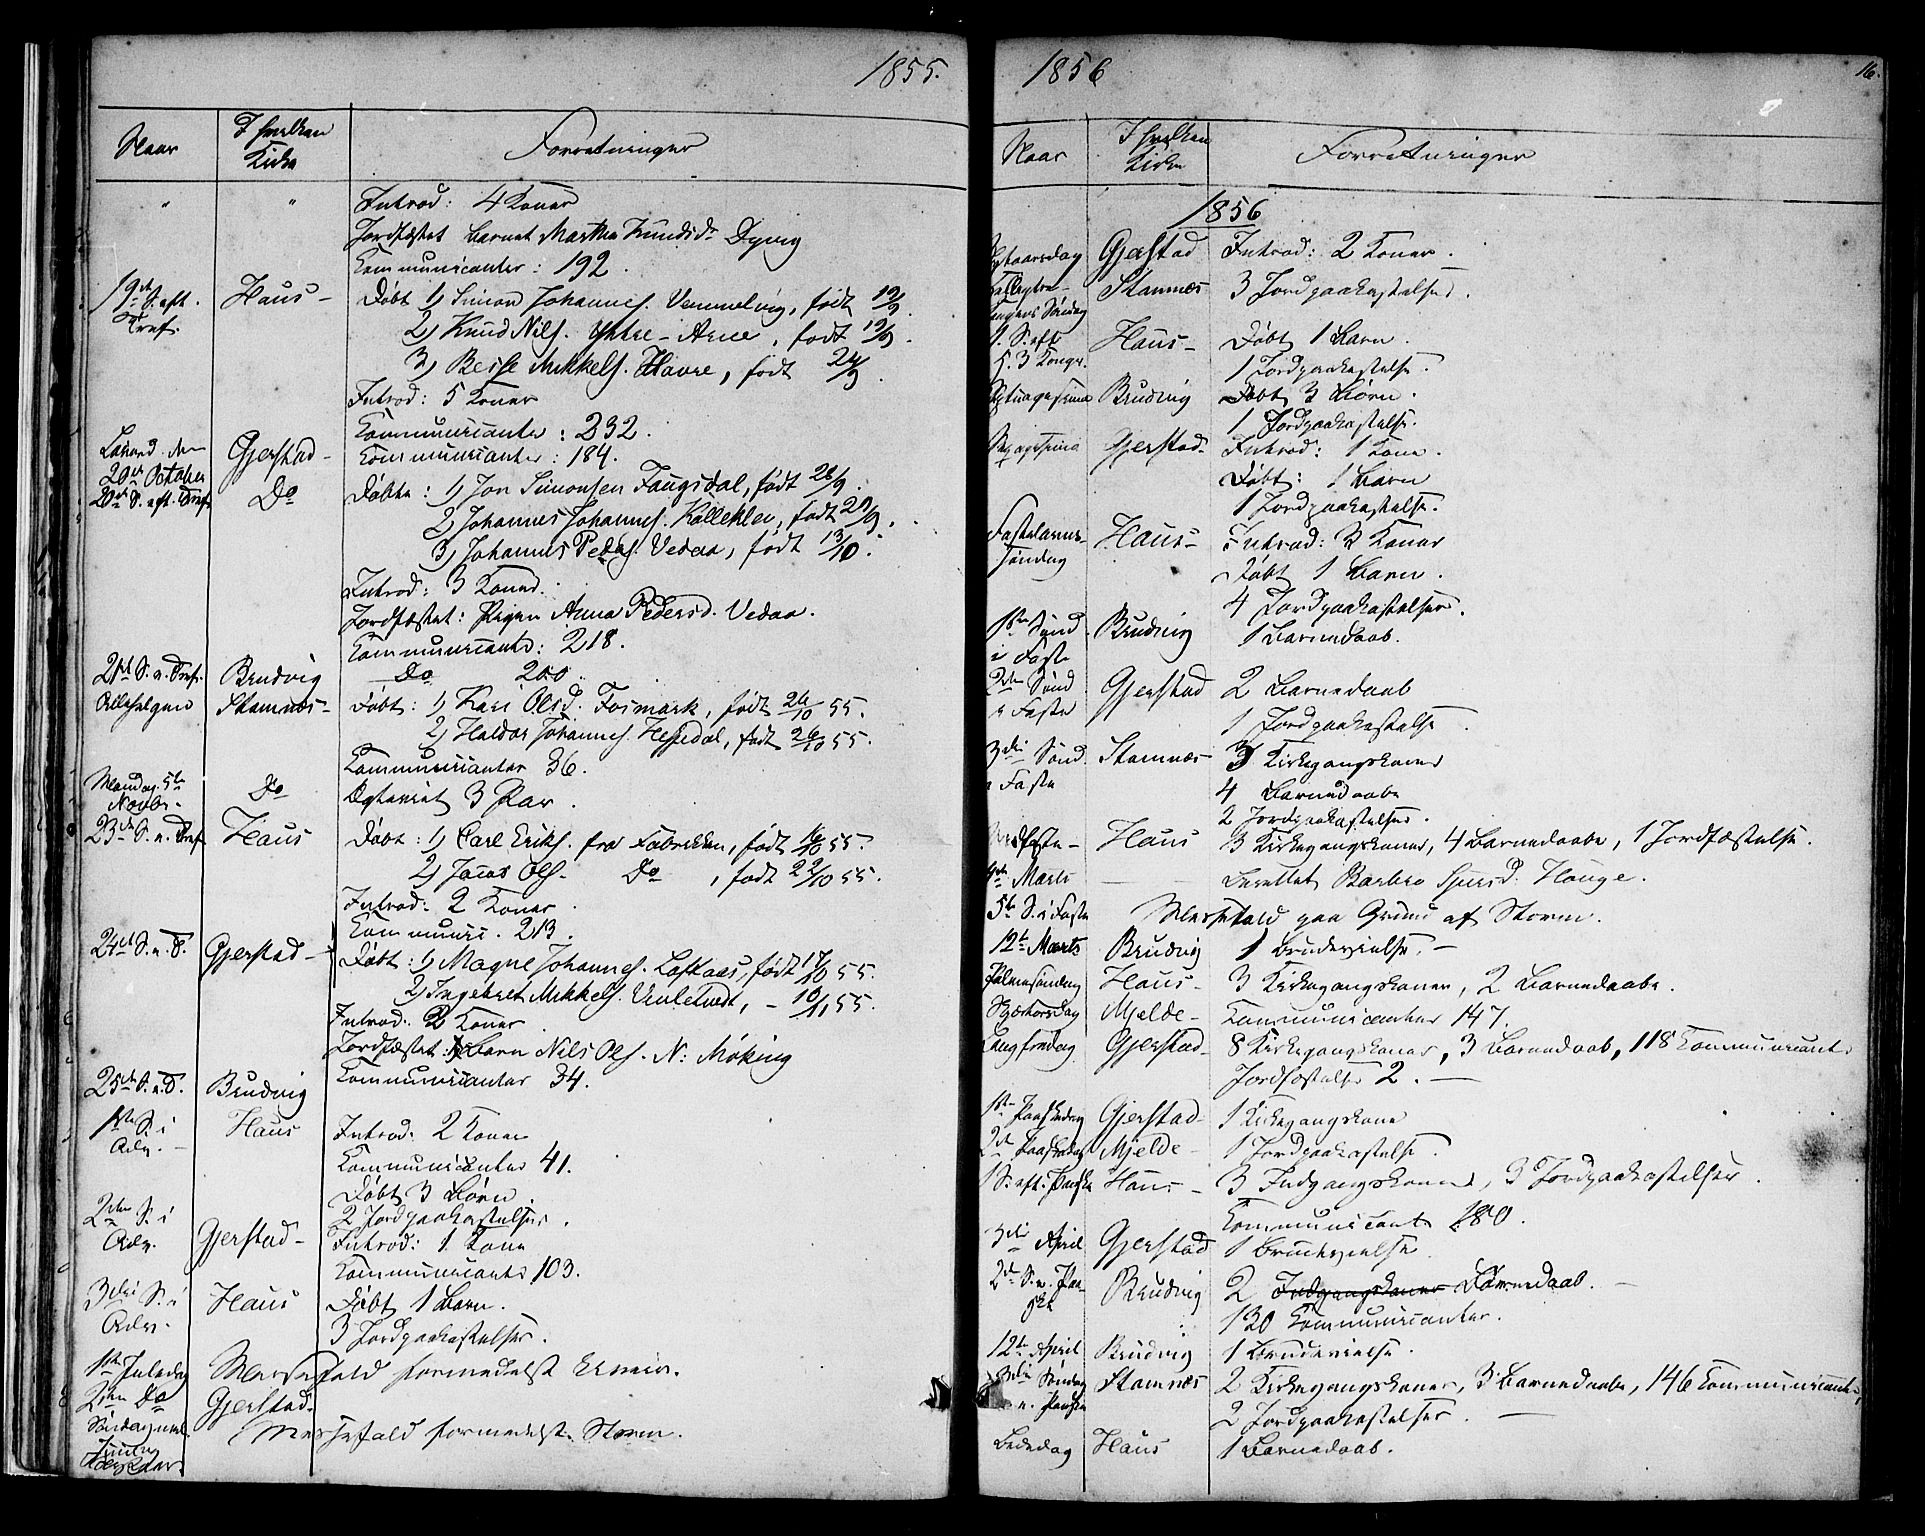 1855.
Naar
I hvilken Kirke
Forretninger
" " Introd: 4 Koner
Jordfæstet barnet Martha Knudsdr Dyvig
Communicanter: 192.
19de S. eft. Haus - Døbt 1, Simon Johannes. Vemmelvig, født 19/9.
Tref. 2, Knud Nils. Ytre-Arne, født 19/9.
3, Besse Mikkels. Havre, født 24/9.
Introd: 5 Koner
Communicanter: 232.
Løverd. den Gjerstad - Communicanter: 184.
20de October
20de S. eft. Tref. Do Døbte: 1, Jon Simonsen Faugsdal, født 28/9.
2, Johannes Johannes. Kalleklev, født 29/9.
3, Johannes Peders. Vedaa, født 13/10.
Introd: 3 Koner.
Jordfæstet: Pigen Anna Pedersd. Vedaa.
Communicanter: 218.
21de S. e. Tref. Brudvig Do 200.
Allehelgen Stamnes- Døbt: 1, Kari Olsd. Fosmark, født 26/10 55.
2, Haldor Johannes. Hesjedal, født 26/10 55.
Communicanter 36.
Mandag 5te Do Ægteviet 3 Par.
Novbr.
23de S. e. Tref. Haus Døbt: 1, Carl Eriks. fra Fabrikken, født 16/10 55.
2, Jacob Ols. Do, født 22/10 55.
Introd: 2 Koner.
Communic. 213.
24de S. e. T. Gjerstad - Døbt: 1, Magne Johannes. Loftaas, født 17/10 55.
2, Ingebret Mikkels. Venletvedt, - 10/11 55.
Introd: 2 Koner.
Jordfæstet: Barn Nils Ols. N: Møking
25de S. e. T. Brudvig Communicanter 34.
1ste S. i Haus Introd: 2 Koner
Adv. Communicanter 41.
Døbt 3 Børn.
2den S. i 2 Jordpaakastelser.
Adv. Gjerstad - Introd: 1 Kone
Communicanter 103.
3die S. i Haus Døbt 1 Barn.
Adv. 3 Jordpaakastelser.
1ste Juledag Messefald formedelst Uveir.
2den Do Gjerstad.
Søndag mel. Messefald formedelst Storm.
Juul og
Nytaar.
1856
16.
Naar
I hvilken Kirke
Forretninger
1856
Nytaarsdag Gjerstad Introd: 2 Koner.
Stamnæs 3 Jordpaakastelser.
Søndag
1. S. eft. Haus - Døbt 1 Barn.
H. 3 Konger. 1 Jordpaakastelse.
Septuagesima Brudvig Døbt 3 Børn.
1 Jordpaakastelse.
Sexagesima Gjerstad- Introd: 1 Kone.
Døbt: 1 Barn
1 Jordpaakastelse.
Fastelavns- Haus - Introd: 3 Koner
søndag Døbt 1 Barn.
4 Jordpaakastelser.
1ste Sønd. Brudvig 1 Barnedaab.
i Faste
2den Sønd. Gjerstad 2 Barnedaab
i Faste 1 Jordpaakastelse.
3die Sønd. Stamnæs 3 Kirkegangskoner
i Faste 4 Barnedaabe
2 Jordpaakastelser.
Midfaste - Haus 3 Kirkegangskoner, 4 Barnedaabe, 1 Jordfæstelse.
Marts Berettet Barbro Sjursd. Houge.
5te S. i Faste Messefald paa Grund af Storm.
12te Marts Brudvig 1 Brudevielse. -
Palmesøndag Haus - 3 Kirkegangskoner, 2 Barnedaabe.
Skjærtorsdag Mjelde - Communicanter 147.
Langfredag Gjerstad - 8 Kirkegangskoner, 3 Barnedaab, 118 Communicant.
Jordfæstelse 2. -
1ste Paaskedag Gjerstad- 1 Kirkegangskone
2den Paaskedag Mjelde - 1 Jordpaakastelse.
1 S. eft. Paaske Haus - 3 Indgangskoner, 3 Jordpaakastelser.
Communicant 180.
3die April Gjerstad 1 Brudevielse.
2den S. e. Paa- Brudvig 2 Indgangskoner Barnedaab. -
ske 130 Communicanter.
12te April Brudvig 1 Brudevielse.
3die Søndag Stamnæs 2 Kirkegangskoner, 3 Barnedaabe, 146 Communicanter,
e. Paaske 2 Jordpaakastelser. -
Bededag Haus 1 Barnedaab.